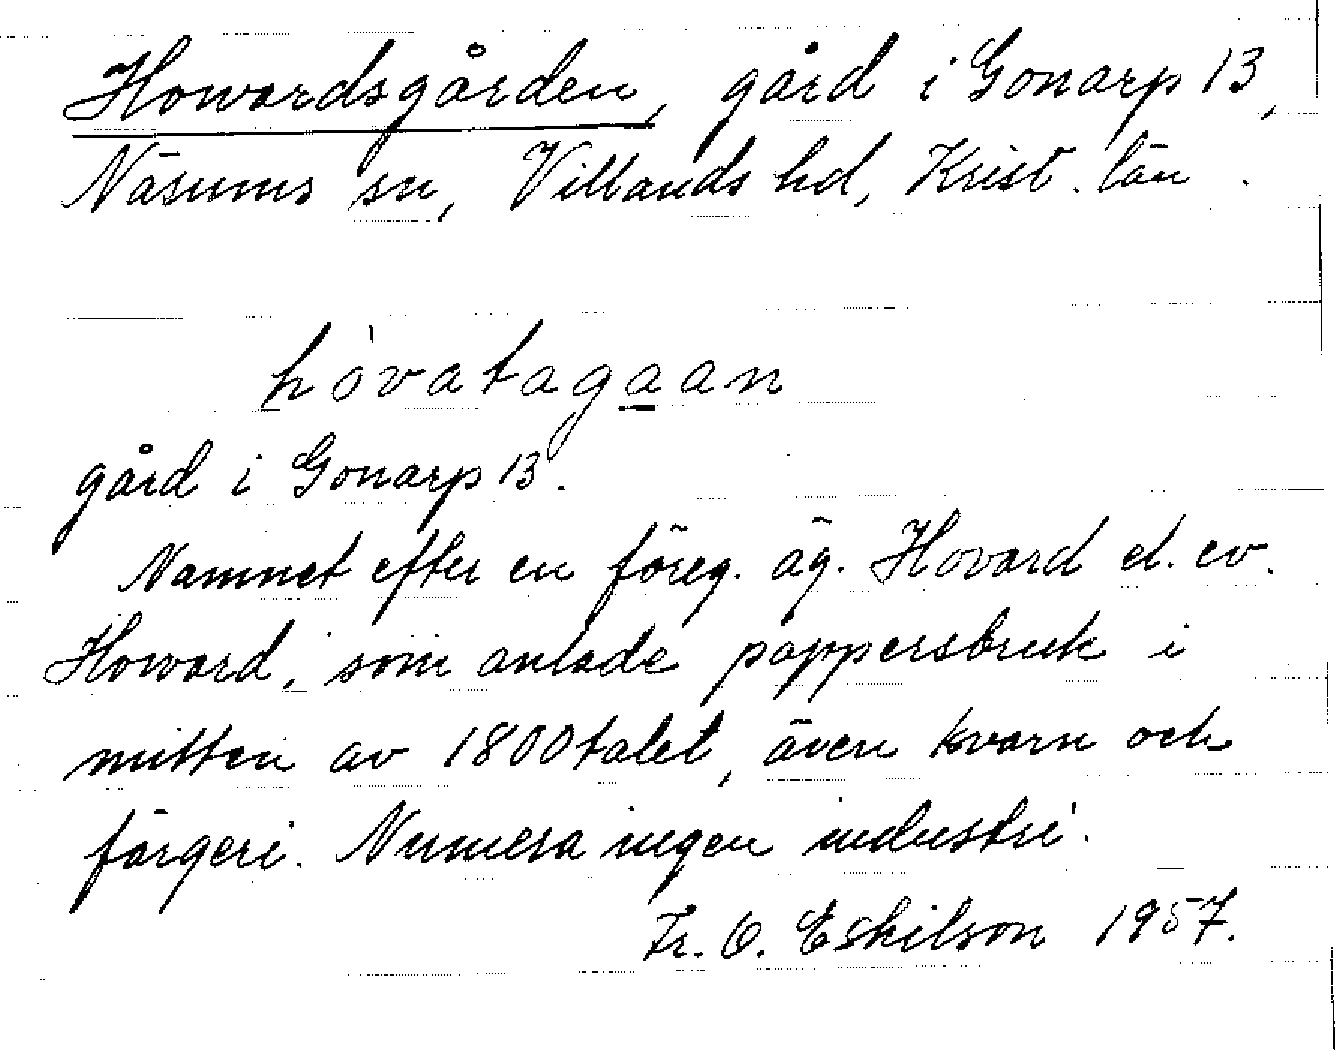 Howardsgården, gård i Gonarp 13,
Näsums sn, Villands hd, Krist. län.
hòvatagaan
gård i Gonarp 13.
Namnet efter en föreg. äg. Hovard el. ev.
Howard, som anlade pappersbruk i
mitten av 1800talet, även kvarn och
färgeri. Numera ingen industri.
Fr. O. Eskilson 1957.